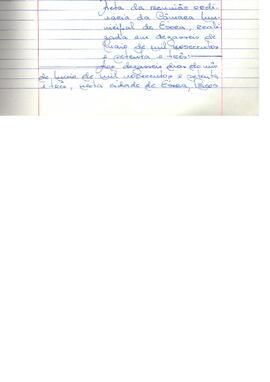 Acta da reunião ordi-
nária da Câmara Mu-
nicipal de Évora, reali-
zada em dezasseis de
Maio de mil novecentos
e setenta e três:
Aos dezasseis dias do mês
de Maio de mil novecentos e setenta
e três, nesta cidade de Évora, Paços